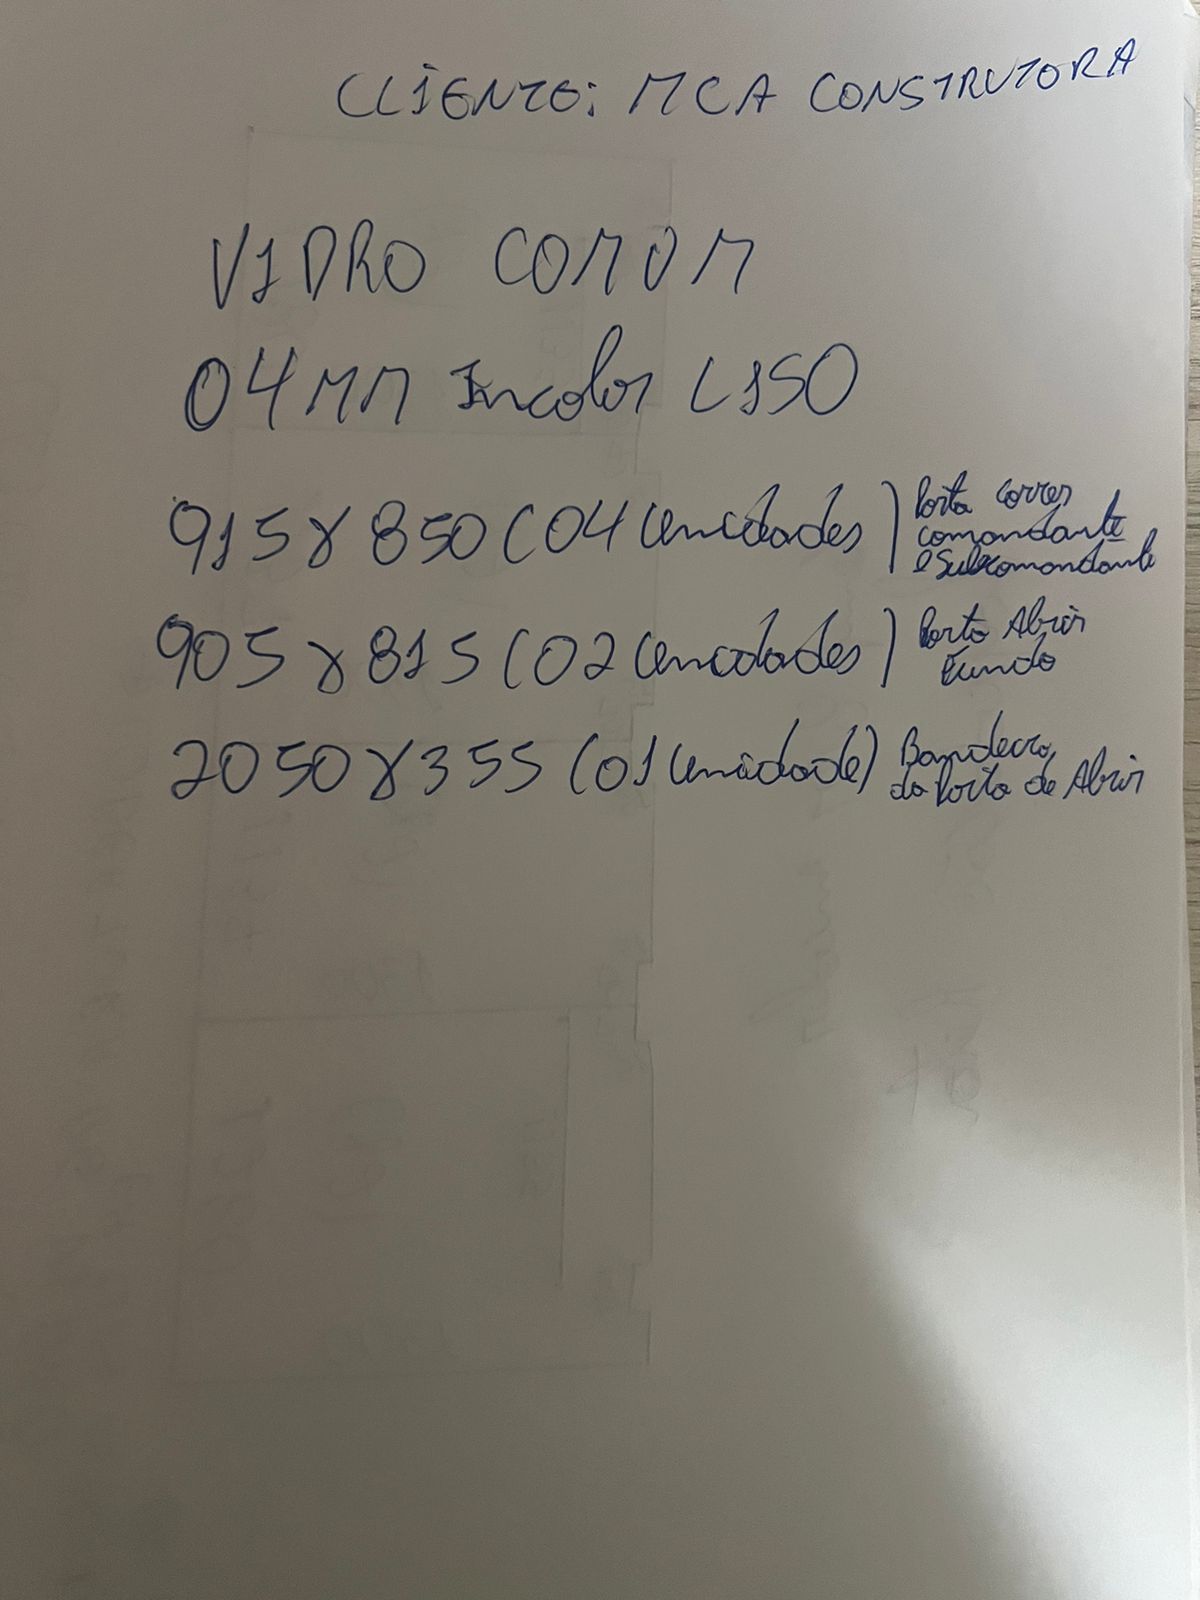 CLIENTE: MCA CONSTRUTORA
VIDRO COMUM
04MM Incolor LISO
915 X 850 (04 unidades) Porta correr
comandante
e Subcomandante
905 X 815 (02 unidades) Porta Abrir
Fundo
2050 X 355 (01 unidade) Bandeira
da Porta de Abrir